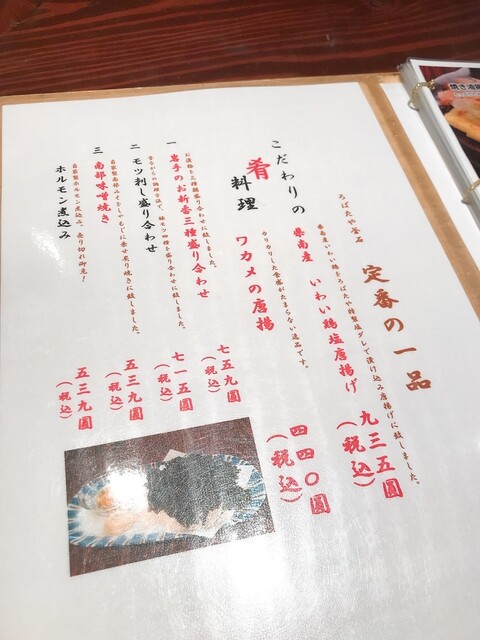 定番の一品
ろばたや釜石
県南産 いわい鶏塩唐揚げ 九三五圓(税込)
県南産いわい鶏をろばたや特製塩ダレで漬け込み唐揚げに致しました。
ワカメの唐揚 四四〇圓(税込)
カリカリした食感がたまらない逸品です。
こだわりの
肴
料理
一 岩手のお新香三種盛り合わせ 七五九圓(税込)
お漬物を三種類盛り合わせに致しました。
二 モツ刺し盛り合わせ 七一五圓(税込)
昔ながらの調理方法で、味モツ四種を盛り合わせに致しました。
三 南部味噌焼き 五三九圓(税込)
ホルモン煮込み 五三九圓(税込)
自家製ホルモン煮込み、売り切れ御免!
焼き